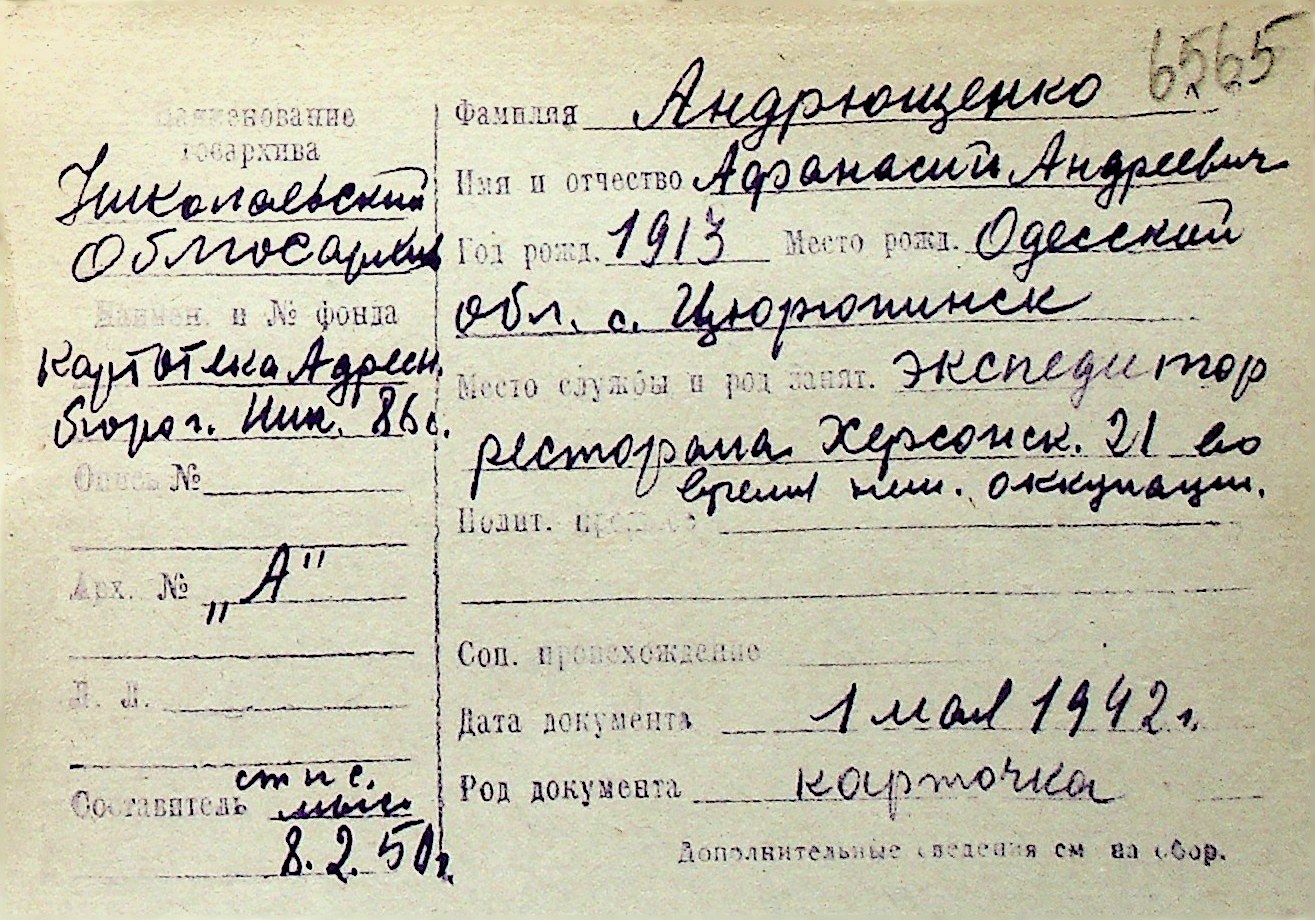 6565
Наименование
госархива
Николаевский
Облгосархив
Наимен. и № фонда
Картотека Адресн.
бюро г. Ник. 86 с.
Опись №
Арх. № „А"
Л. Л.
Составитель ст н с.
8.2.50г.
Фамилия Андрющенко
Имя и отчество Афанасий Андреевич
Год рожд. 1913 Место рожд. Одесской
обл. с. Цюрюпинск
Место службы и род занят. экспедитор
ресторана Херсонск. 21 во
время нем. оккупации.
Полит. прошлое
Соц. происхождение
Дата документа 1 мая 1942 г.
Род документа карточка
Дополнительные сведения см на обор.